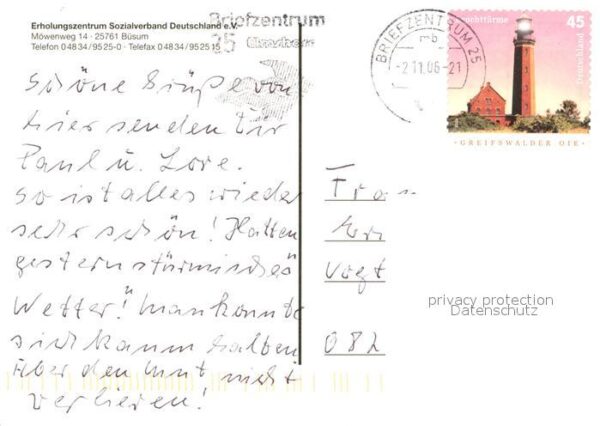 Erholungszentrum Sozialverband Deutschland e.V.
Möwenweg 14 · 25761 Büsum
Telefon 0 48 34 / 95 25-0 · Telefax 0 48 34 / 95 25 15
Briefzentrum
25
BRIEFZENTRUM 25
mb
-2.11.06-21
Leuchttürme
45
Deutschland
· GREIFSWALDER OIE ·
schöne Grüße von
hier senden Dir
Paul u. Lore.
so ist alles wieder
sehr schön! Hatten
gestern stürmisches
Wetter! man konnte
sich kaum halten
über den
verlieren!
Fra
Vogt
082
privacy protection
Datenschutz